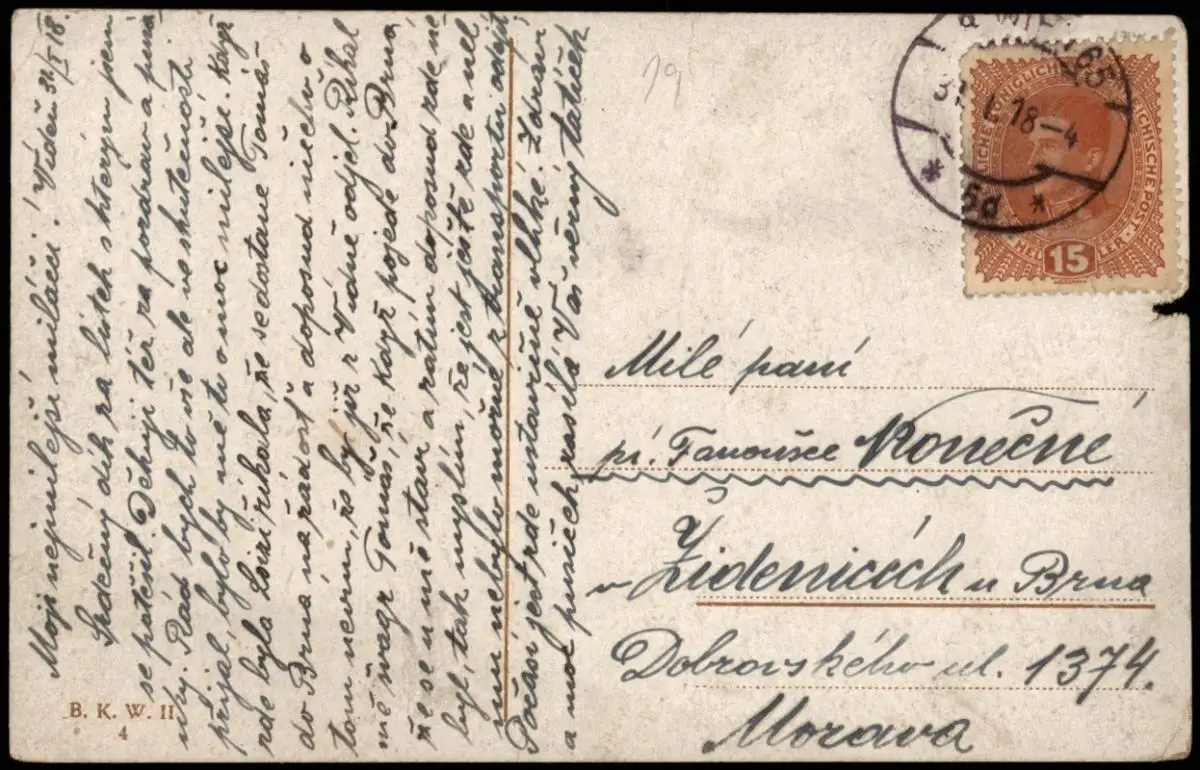 Moji nejmilejší miláčci! Vídeň 31/I 18.
Srdečný dík za lístek s kterým jsem
se potěšil. Děkuji též za pozdrav a
Rád bych to vše ale ve skutečnosti
přijal, bylo by mě to o moc milejší. Když
zde byla Loisi řekala, že se dostane Tomáš
do Brna na žádost a doposud ničeho o
tom nevím, že by již z Vídně odjel. Říkal
mě švagr Tomáš, že když pojede do Brna
že se u mě staví a zatím doposud zde ne
byl, tak myslím, že jest ještě zde a neb
mu nebylo možné z transportu odejít
Počasí jest zde ustavičně vlhké. Zdraví
a moc pusiček zasílá Váš věrný tatíček
B. K. W. II.
4
19
31. I. 18-4
* 5d *
15
HELLER
Milé paní
pí. Fanoušce Konečné
v Židenicích u Brna
Dobrovského ul. 1374.
Morava